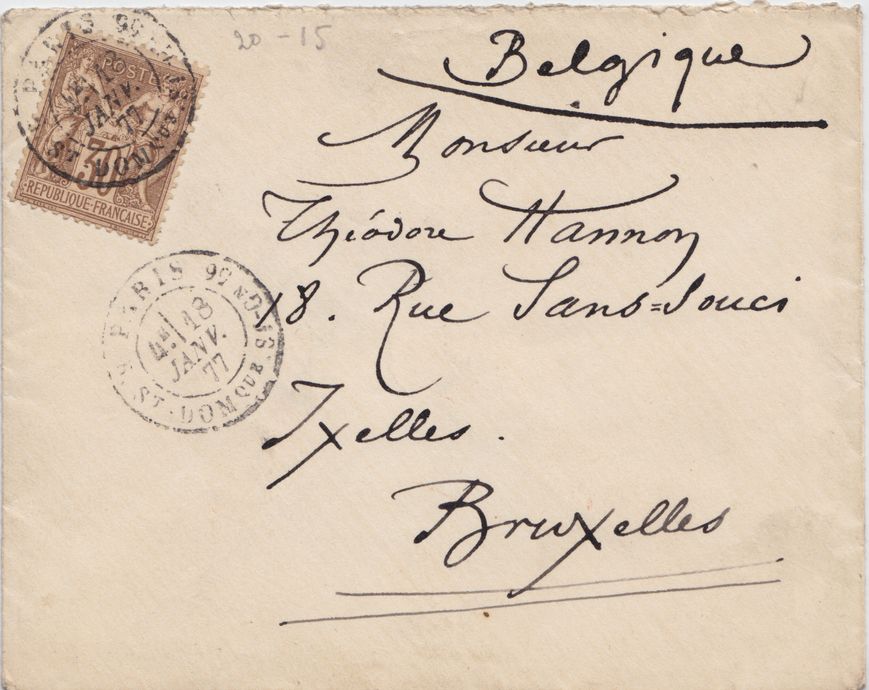 20-15
Belgique
POSTE
30
REPUBLIQUE-FRANÇAISE
JANV.
77
ST. DOMQUE
Monsieur
Théodore Hannon
18. Rue Sans=Souci
Ixelles.
Bruxelles
PARIS
18
JANV.
77
ST. DOMQUE